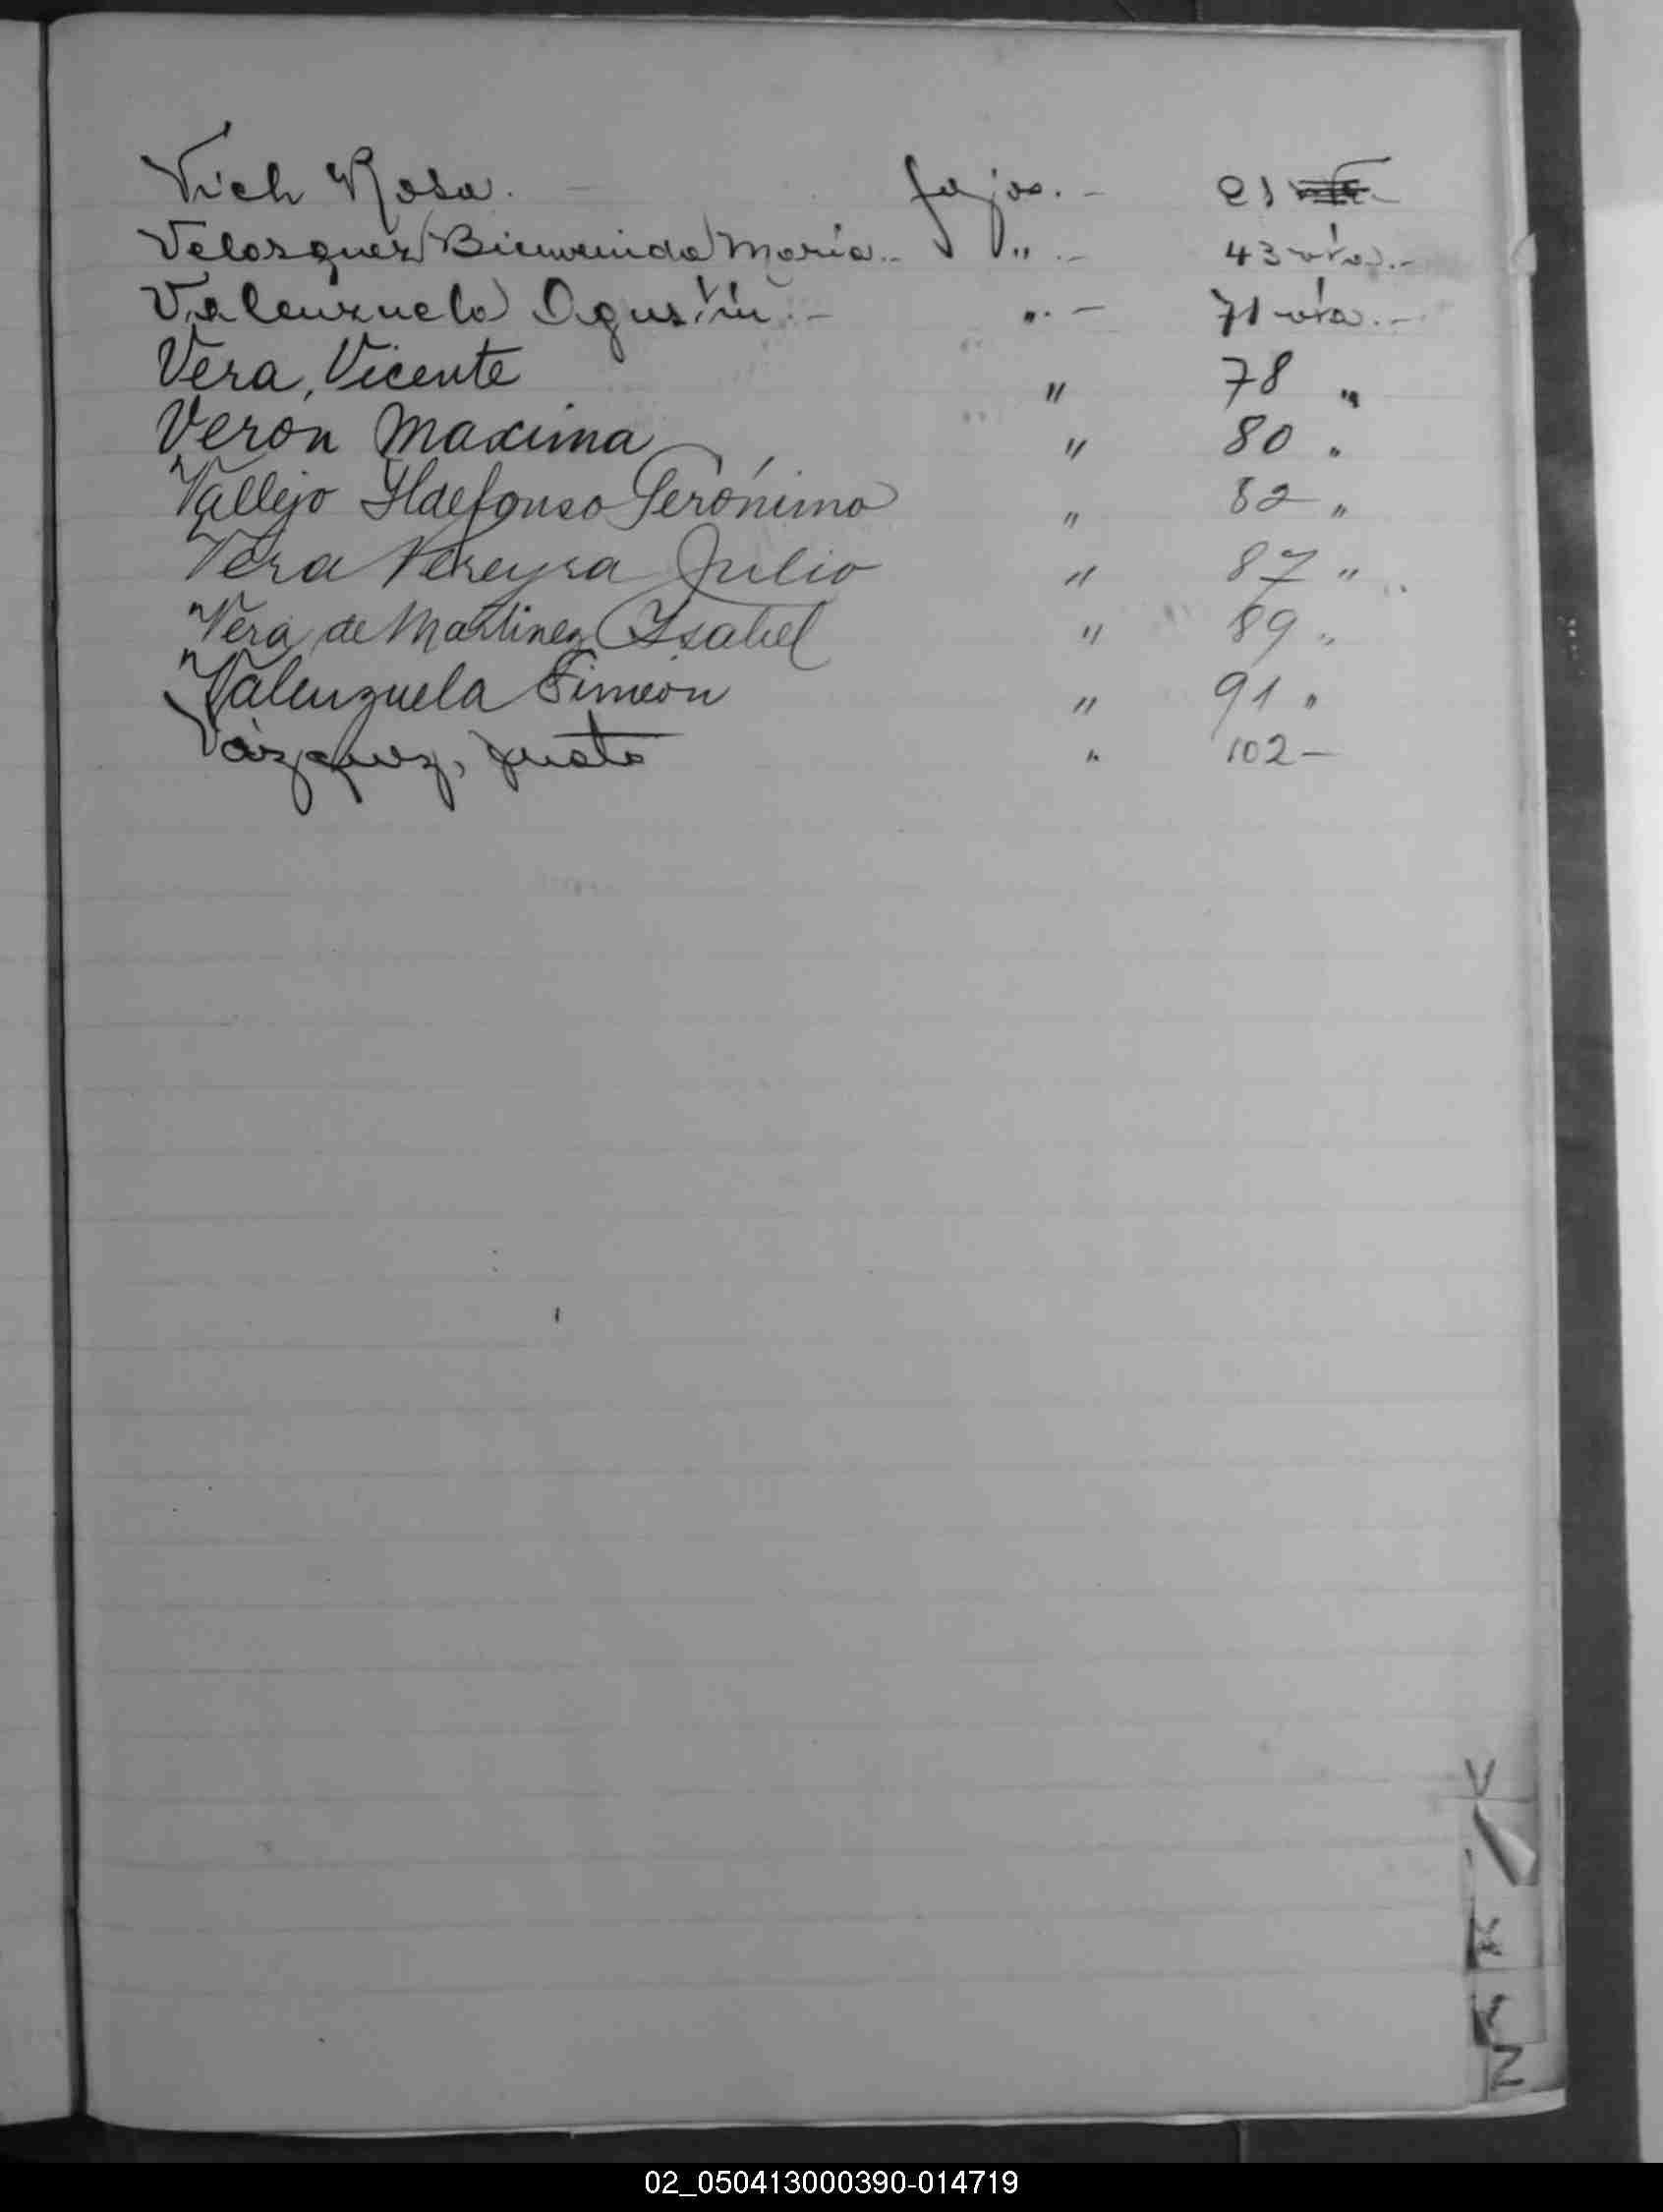 Vich Rosa. fojas. - 21
Velasquez Bienvenida Maria.. " .- 43 vta.-
Valenzuela Agustín.- ". - 71 vta.-
Vera, Vicente " 78 "
Veron Maxima " 80 "
Vallejo Ildefonso Gerónimo " 82 "
Vera Pereyra Julio " 87 "
Vera de Martinez Isabel " 89 "
Valenzuela Simeón " 91 "
Vázquez, Justo " 102-
V
Z
02_050413000390-014719